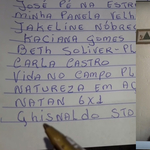 JOSÉ PÉ NA ESTRA
MINHA PANELA VELH
JAKELINE NÓBREG
KACIANA GOMES
BETH SOLIVER-PL
CARLA CASTRO
VIDA NO CAMPO PL
NATUREZA EM AÇ
NATAN 6X1
GHISNALDO STD